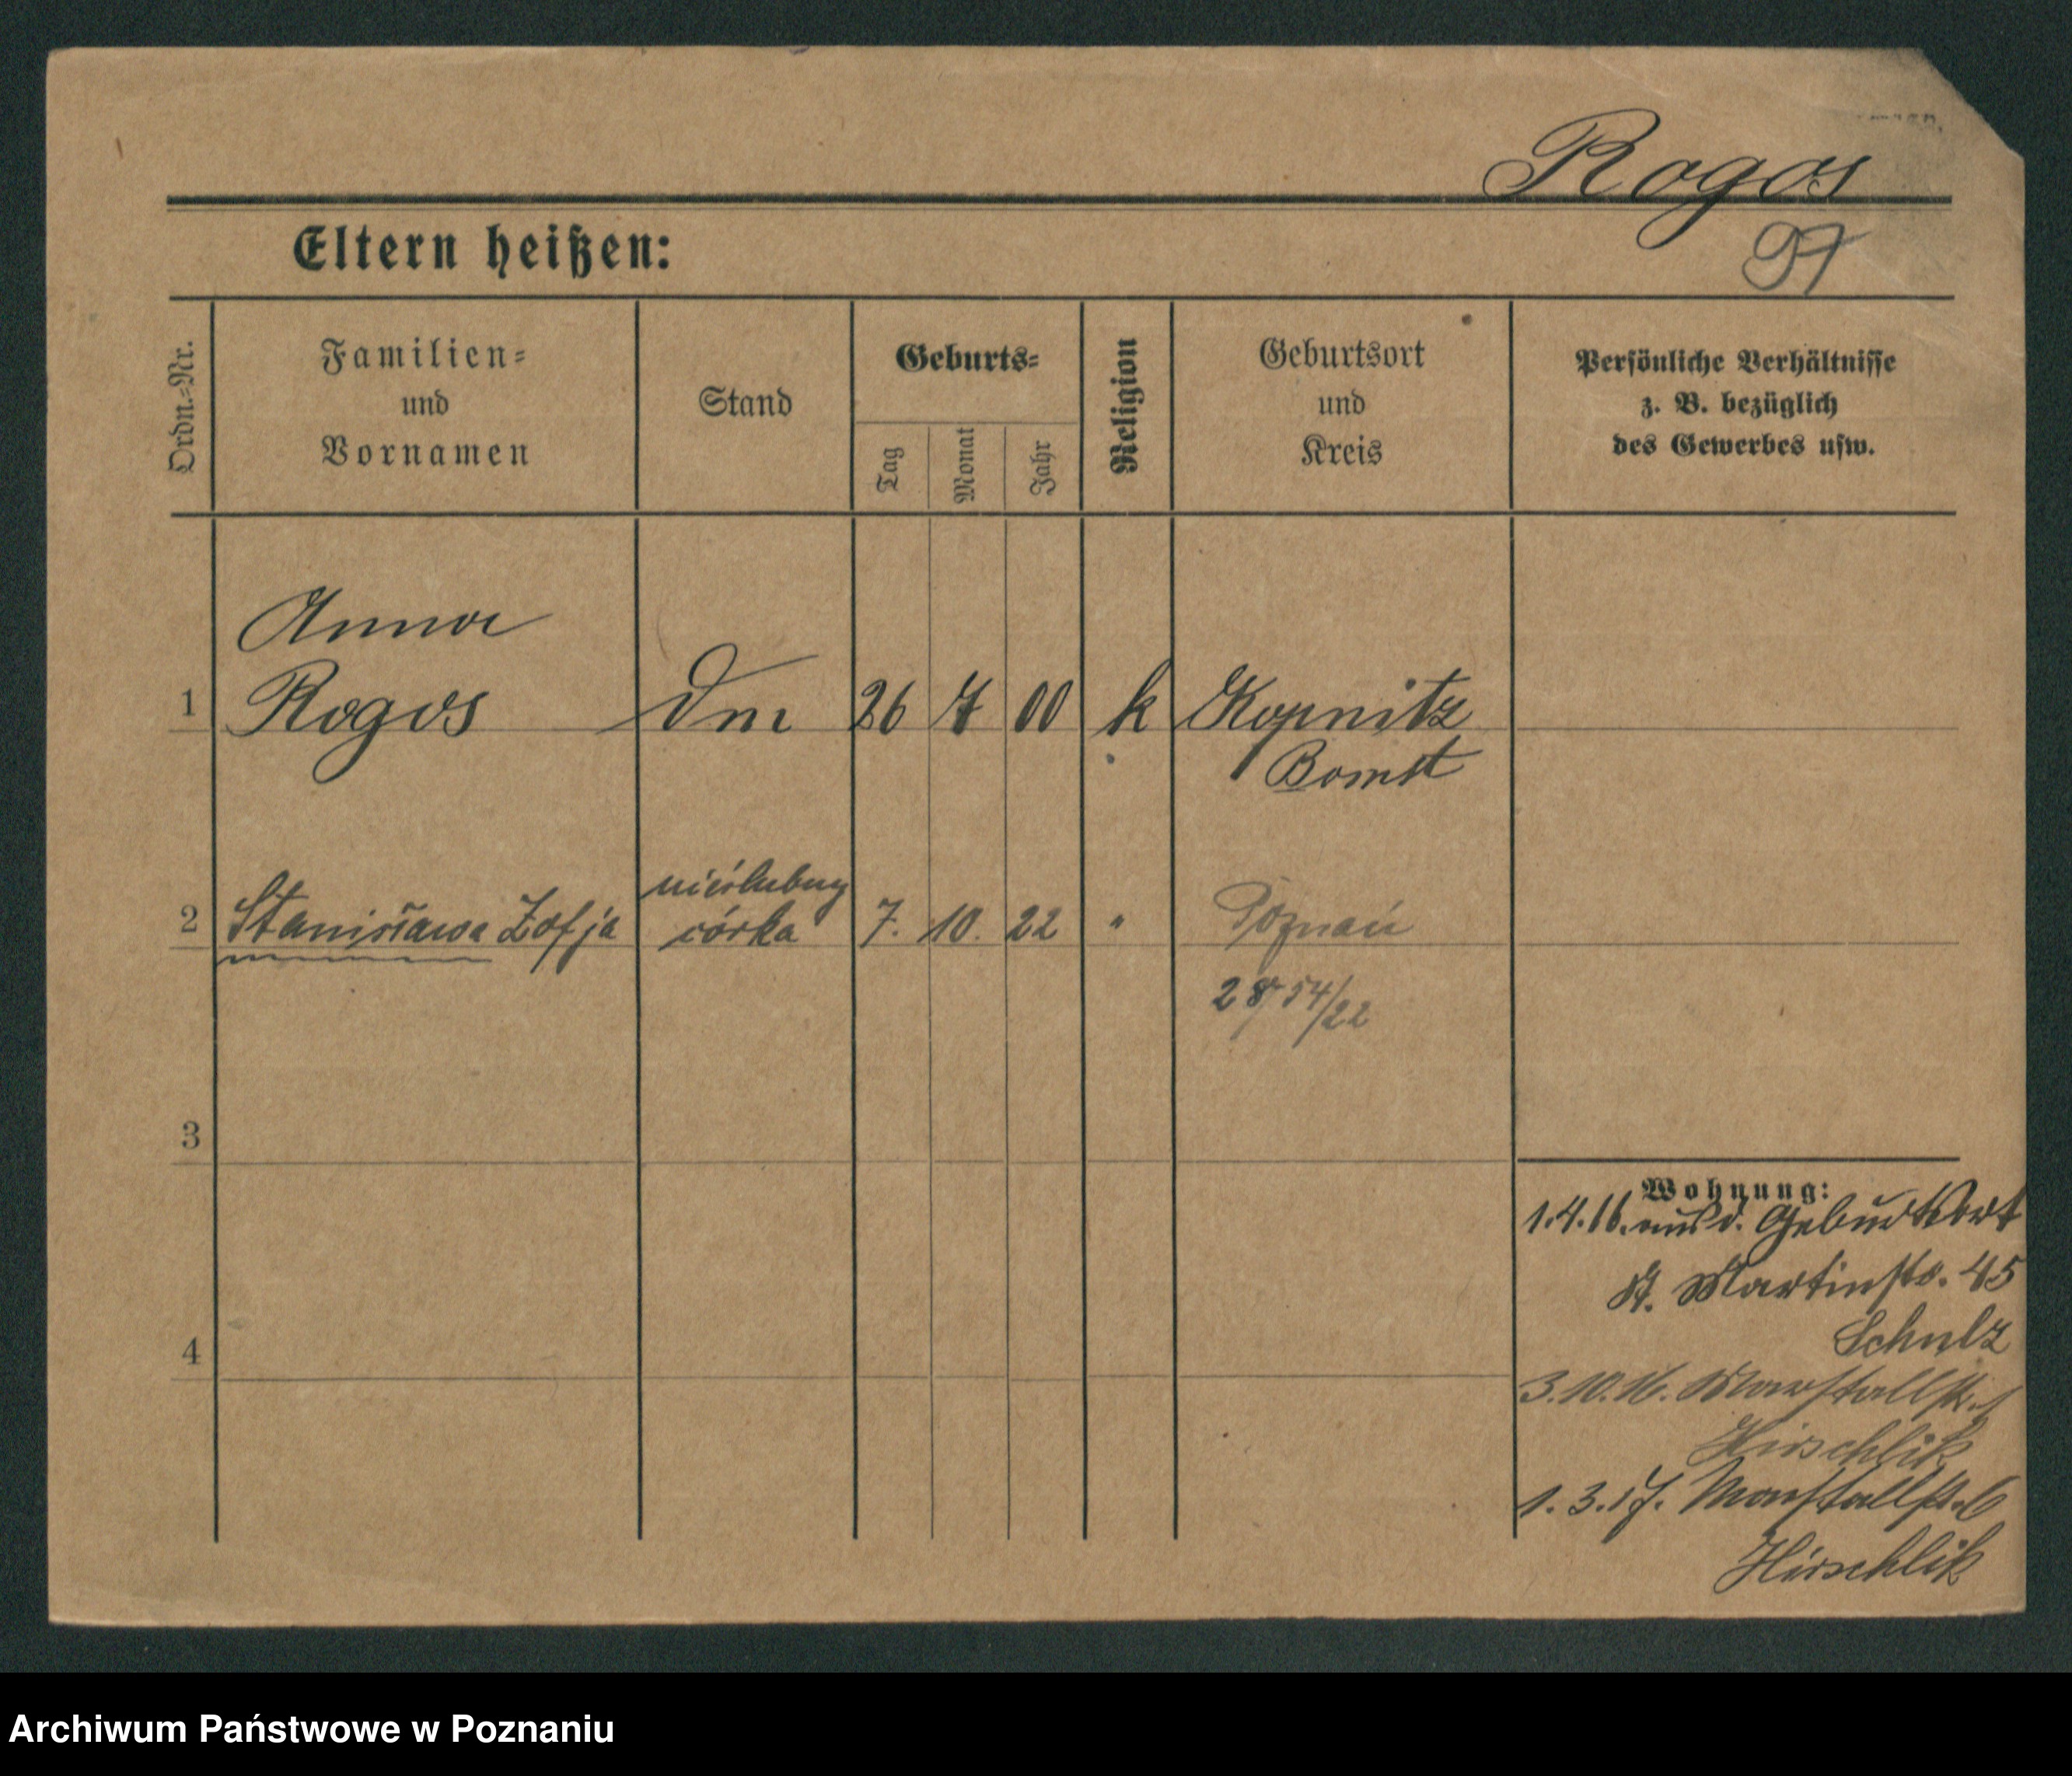 Rogos
Eltern heißen:
Ordn.-Nr.
Familien-
und
Vornamen
Stand
Geburts-
Tag
Monat
Jahr
Religion
Geburtsort
und
Kreis
Persönliche Verhältnisse
z. B. bezüglich
des Gewerbes usw.
Anna
1 Rogos Dm 26 7 00 k Kopnitz
Bomst
nieślubny
2 Stanisława Zofja córka 7. 10. 22 " Poznań
2854/22
3
4
Wohnung:
1.4.16. aus d. Geburtsort
St. Martinstr. 45
Schulz
3.10.16. Marstallstr.
Hirschlik
1.3.17. Marstallstr. 6
Hirschlik
Archiwum Państwowe w Poznaniu